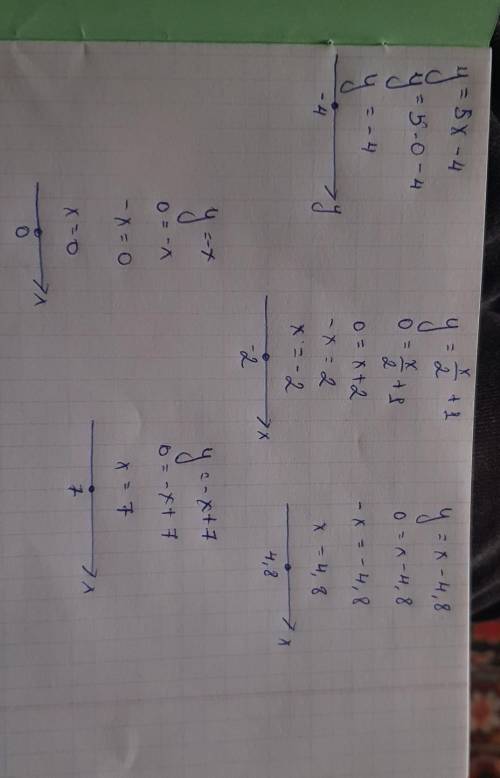 y = 5x - 4
y = 5·0 - 4
y = -4
-4 y
y = x/2 + 1
0 = x/2 + 1
0 = x + 2
-x = 2
x = -2
-2 x
y = x - 4,8
0 = x - 4,8
-x = -4,8
x = 4,8
4,8 x
y = -x
0 = -x
-x = 0
x = 0
0 x
y = -x + 7
0 = -x + 7
x = 7
7 x